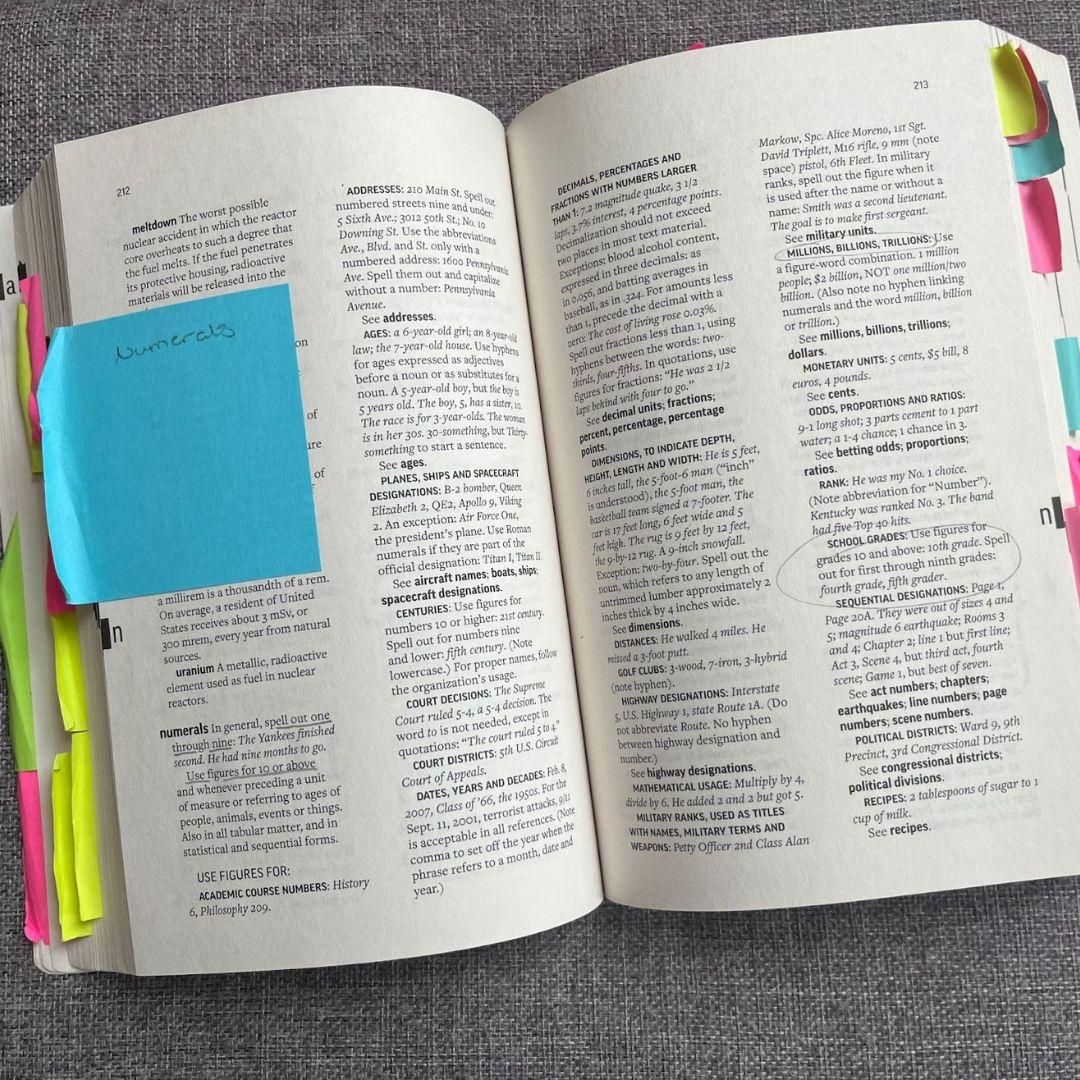 212
meltdown The worst possible
nuclear accident in which the reactor
core overheats to such a degree that
the fuel melts. If the fuel penetrates
its protective housing, radioactive
materials will be released into the
on
of
ure
of
Numerals
a millirem is a thousandth of a rem.
On average, a resident of United
States receives about 3 mSv, or
300 mrem, every year from natural
sources.
uranium A metallic, radioactive
element used as fuel in nuclear
reactors.
numerals In general, spell out one
through nine: The Yankees finished
second. He had nine months to go.
Use figures for 10 or above
and whenever preceding a unit
of measure or referring to ages of
people, animals, events or things.
Also in all tabular matter, and in
statistical and sequential forms.
USE FIGURES FOR:
ACADEMIC COURSE NUMBERS: History
6, Philosophy 209.
ADDRESSES: 210 Main St. Spell out
numbered streets nine and under:
5 Sixth Ave.; 3012 50th St.; No. 10
Downing St. Use the abbreviations
Ave., Blvd. and St. only with a
numbered address: 1600 Pennsylvania
Ave. Spell them out and capitalize
without a number: Pennsylvania
Avenue.
See addresses.
AGES: a 6-year-old girl; an 8-year-old
law; the 7-year-old house. Use hyphens
for ages expressed as adjectives
before a noun or as substitutes for a
noun. A 5-year-old boy, but the boy is
5 years old. The boy, 5, has a sister, 10.
The race is for 3-year-olds. The woman
is in her 30s. 30-something, but Thirty-
something to start a sentence.
See ages.
PLANES, SHIPS AND SPACECRAFT
DESIGNATIONS: B-2 bomber, Queen
Elizabeth 2, QE2, Apollo 9, Viking
2. An exception: Air Force One,
the president's plane. Use Roman
numerals if they are part of the
official designation: Titan I, Titan II.
See aircraft names; boats, ships;
spacecraft designations.
CENTURIES: Use figures for
numbers 10 or higher: 21st century.
Spell out for numbers nine
and lower: fifth century. (Note
lowercase.) For proper names, follow
the organization's usage.
COURT DECISIONS: The Supreme
Court ruled 5-4, a 5-4 decision. The
word to is not needed, except in
quotations: "The court ruled 5 to 4."
COURT DISTRICTS: 5th U.S. Circuit
Court of Appeals.
DATES, YEARS AND DECADES: Feb. 8,
2007, Class of '66, the 1950s. For the
Sept. 11, 2001, terrorist attacks, 9/11
is acceptable in all references. (Note
comma to set off the year when the
phrase refers to a month, date and
year.)
213
DECIMALS, PERCENTAGES AND
FRACTIONS WITH NUMBERS LARGER
THAN 1: 7.2 magnitude quake, 3 1/2
laps, 3.7% interest, 4 percentage points.
Decimalization should not exceed
two places in most text material.
Exceptions: blood alcohol content,
expressed in three decimals: as
in 0.056, and batting averages in
baseball, as in .324. For amounts less
than 1, precede the decimal with a
zero: The cost of living rose 0.03%.
Spell out fractions less than 1, using
hyphens between the words: two-
thirds, four-fifths. In quotations, use
figures for fractions: "He was 2 1/2
laps behind with four to go."
See decimal units; fractions;
percent, percentage, percentage
points.
DIMENSIONS, TO INDICATE DEPTH,
HEIGHT, LENGTH AND WIDTH: He is 5 feet,
6 inches tall, the 5-foot-6 man ("inch"
is understood), the 5-foot man, the
basketball team signed a 7-footer. The
car is 17 feet long, 6 feet wide and 5
feet high. The rug is 9 feet by 12 feet,
the 9-by-12 rug. A 9-inch snowfall.
Exception: two-by-four. Spell out the
noun, which refers to any length of
untrimmed lumber approximately 2
inches thick by 4 inches wide.
See dimensions.
DISTANCES: He walked 4 miles. He
missed a 3-foot putt.
GOLF CLUBS: 3-wood, 7-iron, 3-hybrid
(note hyphen).
HIGHWAY DESIGNATIONS: Interstate
5, U.S. Highway 1, state Route 1A. (Do
not abbreviate Route. No hyphen
between highway designation and
number.)
See highway designations.
MATHEMATICAL USAGE: Multiply by 4,
divide by 6. He added 2 and 2 but got 5.
MILITARY RANKS, USED AS TITLES
WITH NAMES, MILITARY TERMS AND
WEAPONS: Petty Officer 2nd Class Alan
Markow, Spc. Alice Moreno, 1st Sgt.
David Triplett, M16 rifle, 9 mm (note
space) pistol, 6th Fleet. In military
ranks, spell out the figure when it
is used after the name or without a
name: Smith was a second lieutenant.
The goal is to make first sergeant.
See military units.
MILLIONS, BILLIONS, TRILLIONS: Use
a figure-word combination. 1 million
people; $2 billion, NOT one million/two
billion. (Also note no hyphen linking
numerals and the word million, billion
or trillion.)
See millions, billions, trillions;
dollars.
MONETARY UNITS: 5 cents, $5 bill, 8
euros, 4 pounds.
See cents.
ODDS, PROPORTIONS AND RATIOS:
9-1 long shot; 3 parts cement to 1 part
water; a 1-4 chance; 1 chance in 3.
See betting odds; proportions;
ratios.
RANK: He was my No. 1 choice.
(Note abbreviation for "Number").
Kentucky was ranked No. 3. The band
had five Top 40 hits.
SCHOOL GRADES: Use figures for
grades 10 and above: 10th grade. Spell
out for first through ninth grades:
fourth grade, fifth grader.
SEQUENTIAL DESIGNATIONS: Page 1,
Page 20A. They were out of sizes 4 and
5; magnitude 6 earthquake; Rooms 3
and 4; Chapter 2; line 1 but first line;
Act 3, Scene 4, but third act, fourth
scene; Game 1, but best of seven.
See act numbers; chapters;
earthquakes; line numbers; page
numbers; scene numbers.
POLITICAL DISTRICTS: Ward 9, 9th
Precinct, 3rd Congressional District.
See congressional districts;
political divisions.
RECIPES: 2 tablespoons of sugar to 1
cup of milk.
See recipes.
a
n
n